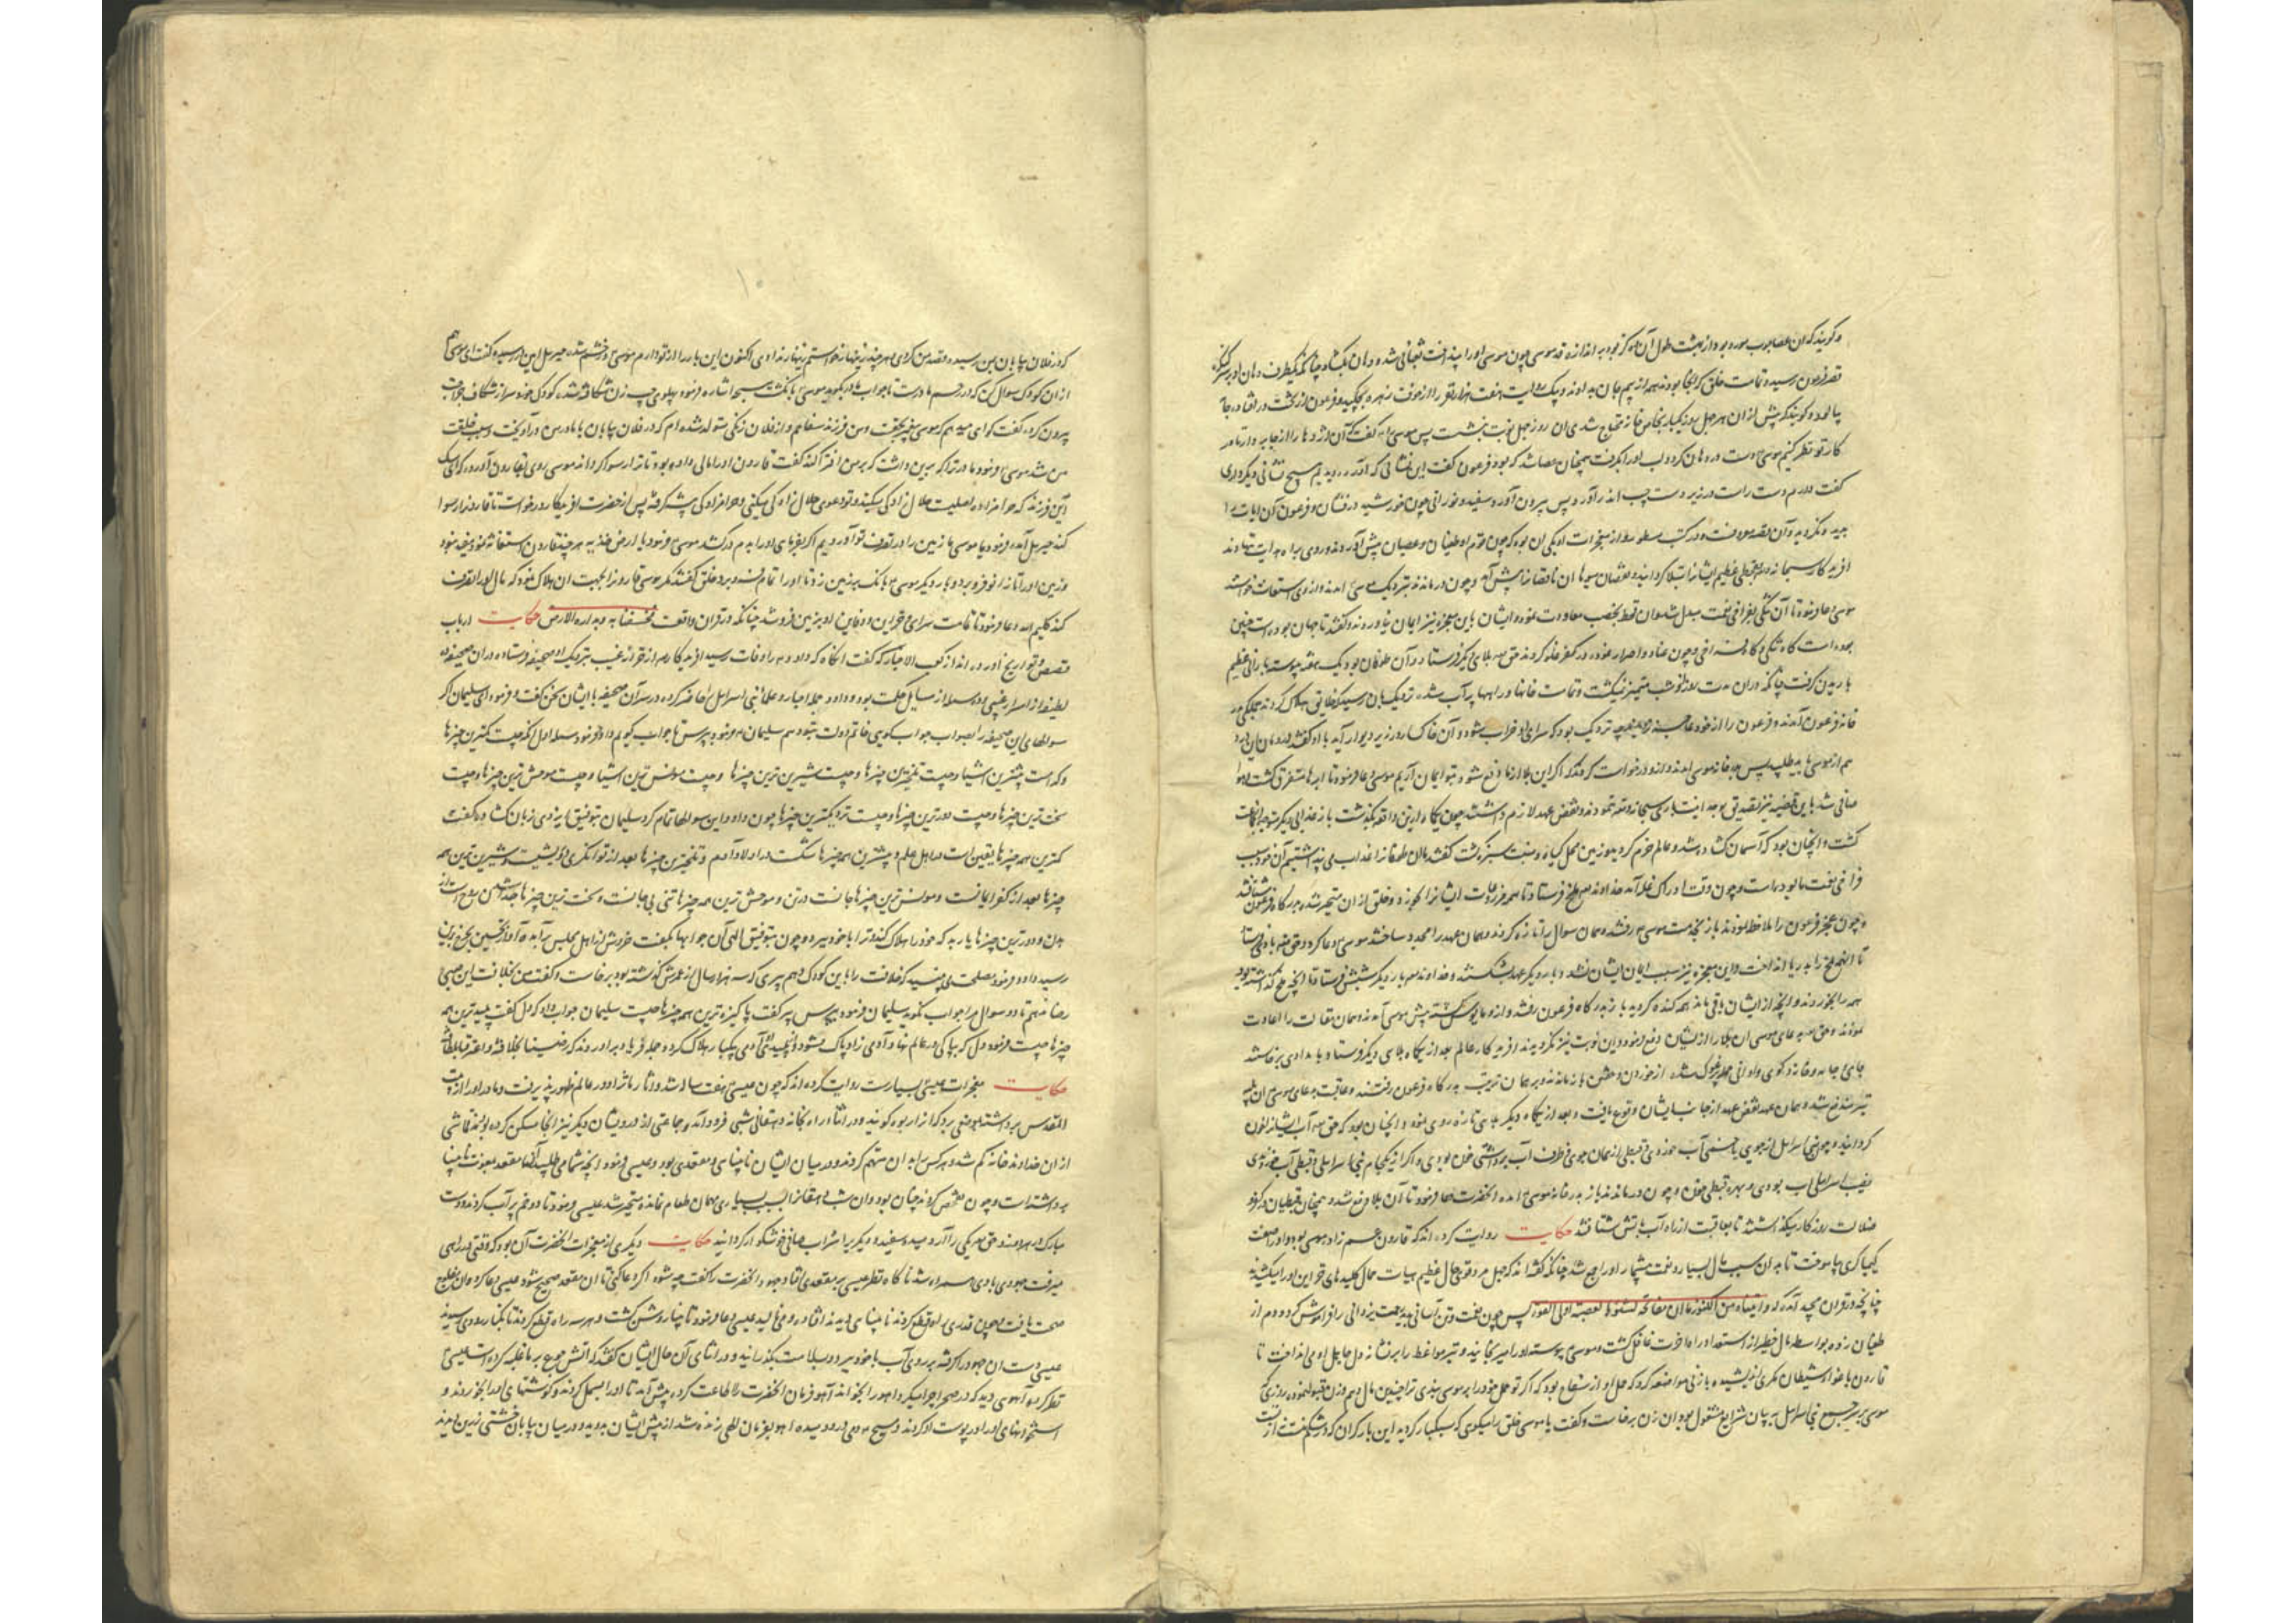 و گویند که آن عصا چوب مورد بود از بهشت طول آن ده گز بود به اندازه قد موسی چون موسی او را بینداخت ثعبانی شد و دهان بگشاد چنانکه یکطرف دهان او بر کنگره
قصر فرعون رسید و تمامت خلق که آنجا بودند همه از بیم جان بدادند و بیک روایت هفت هزار نفر را از خوف زهره بچکید و فرعون از تخت در افتاد و جامه
پالود و گویند که پیش از آن هر چهل روز یکبار بخانه محتاج شدی آن روز چهل نوبت بنشست پس موسی را گفت که آن اژدها را از جا بردار تا در
کار تو نظر کنیم موسی دست در دهان کرد و او را بگرفت همچنان عصا شد که بود فرعون گفت این نشانی که آوردی دیدیم هیچ نشانی دیگر داری
گفت دارم دست راست در زیر دست چپ اندر آورد پس بیرون آورد سفید و نورانی چون خورشید درفشان و فرعون آن آیات را
بدید و نگروید و آن قصه معروفست و در کتب مسطور و از معجزات او یکی آن بود که چون قوم او طغیان و عصیان پیش آوردند و روی براه هدایت ننهادند
آفریدگار سبحانه و تعالی قحطی عظیم ایشانرا مبتلا گردانید و نقصان میوها آن ناقصانرا پیش آمد و چون درماندند بنزدیک موسی آمدند و از وی استعانت خواستند
موسی دعا فرمود تا آن تنگی بفراخی نعمت مبدل شد و آن قحط بخصب معاودت نمود و ایشان باین معجزه نیز ایمان نیاوردند و گفتند تا جهان بوده است چنین
بوده است گاه تنگی و گاه فراخی و چون عناد و اصرار نمودند در کفر غلو کردند حق تعالی بلای دیگر فرستاد و آن طوفان بود یک هفته پیوسته بارانی عظیم
باریدن گرفت چنانکه در آن مدت روز از شب متمیز نمیگشت و تمامت خانها و راهها پر آب شد نزدیک بآن رسید که خلایق هلاک گردند جملگی بدر
خانه فرعون آمدند و فرعون را از خود عاجزتر دیدند چه نزدیک بود که سرای او خراب شود
هم از موسی باید طلبید پس بدر خانه موسی آمدند و از او درخواست کردند که اگر این بلا از ما دفع شود بتو ایمان آریم موسی دعا فرمود تا ابرها متفرق گشت و هوا
صافی شد باین قضیه نیز تصدیق بوحدانیت باری سبحانه و تعالی ننمودند و نقض عهد لازم داشتند چون یکماه از این واقعه بگذشت باز عذابی دیگر
گشت و آنچنان بود که آسمان گشاده شد و عالم خرم گردید و زمین محل گیاه و نبت سبز گشت گفتند ما آن طوفانرا عذاب می پنداشتیم آن خود سبب
فراخی نعمت ما بوده است و چون وقت ادراک غله آمد خداوند تعالی ملخ فرستاد تا همه مزروعات ایشانرا بخورد و خلق از آن متحیر شدند بدرگاه فرعون شتافتند
و چون عجز فرعون را ملاحظه نمودند باز بخدمت موسی رفتند و همان سوال را تازه کردند و همان عهد را مجدد ساختند موسی دعا کرد و حق تعالی باد فرستاد
تا آن همه ملخ را بدریا انداخت و این معجزه نیز سبب ایمان ایشان نشد و بار دیگر عهد بشکستند و خداوند تعالی بار دیگر شپش فرستاد تا آنچه ملخ گذاشته بود
همه را بخوردند و آنچه از ایشان باقی ماند همه گنده گردید باز بدرگاه فرعون رفتند و از او مایوس گشته پیش موسی آمدند و همان مقالت را اعادت
نمودند و حق تعالی بدعای موسی آن بلا را از ایشان دفع فرمود و این نوبت نیز نگرویدند آفریدگار عالم بعد از یکماه بلای دیگر فرستاد و بامدادی برخاستند
جای جامه و خانه و کوی و اوانی همه پر غوک شد از خوردن و خفتن بازماندند و بر همان ترتیب بدرگاه فرعون رفتند و عاقبت بدعای موسی آن بلیه
نیز مندفع شد و همان عهد نقض عهد از جانب ایشان وقوع یافت و بعد از یکماه دیگر بلای تازه روی نمود و آنچنان بود که حق تعالی آب ایشانرا خون
گردانید و چون بنی اسرائیل از جوی یا چشمه آب خوردی و قبطی از همان جوی ظرف آب برداشتی خون بودی و اگر از یک جام بنی اسرائیلی و قبطی آب خوردی
نصیب اسرائیلی آب بودی و بهره قبطی خون و چون درماندند باز بدر خانه موسی آمدند آنحضرت دعا فرمود تا آن بلا دفع شد و همچنان قبطیان در کفر و
ضلالت روزگار میگذاشتند تا بعاقبت از راه آب بآتش شتافتند حکایت روایت کرده اند که قارون عم زاده موسی بود و او را صنعت
کیمیاگری بیاموخت تا بدان سبب مال بسیار و نعمت بیشمار او را جمع شد چنانکه گفته اند که چهل مرد قوی حال عظیم هیات حمال کلیدهای خزاین او را میکشیدند
چنانچه در قرآن مجید آمده که و آتیناه من الکنوز ما ان مفاتحه لتنوء بالعصبة اولی القوة پس چون نعمت و تن آسانی بدید نعمت یزدانی را فراموش کرد و دم از
طغیان زد و بواسطه مال خطیر از استعداد راه آخرت غافل گشت و موسی پیوسته او را میرنجانید و تیر مواعظ را بر نشانه دل جاهل او می انداخت تا
قارون باغوای شیطان مکری اندیشیده با زنی مواضعه کرد که حمل او از سفاح بود که اگر تو حمل خود را بر موسی بندی ترا چندین مال دهم و زن قبول نمود روزی که
موسی بر سر جمع بنی اسرائیل به بیان شرایع مشغول بود آن زن برخاست و گفت یا موسی خلق را میگوی که سبکبار گردید این بار گران که در شکم منست از تست
که در فلان بیابان بمن رسیدی و قصد من کردی هر چند زینهار خواستم زینهار ندادی اکنون این بار را از تو دارم موسی در خشم شد جبرئیل امین در رسید و گفت ای موسی هم
از آن کودک سوال کن که در رحم مادرست تا جواب مادر بگوید موسی بانگشت مسبحه اشاره فرمود پهلوی چپ زن شکافته شد کودک خرد سر از شکاف جراحت
بیرون کرد و گفت گواهی میدهم که موسی پیغمبر بحقست و من فرزند سفاحم و از فلان زنگی متولد شده ام که در فلان بیابان با مادر من درآویخت و سبب خلقت
من شد موسی فرمود مادر ترا که برین داشت که بر من افترا کند گفت قارون او را مالی داده بود تا ترا رسوا گرداند موسی روی بقارون آورد که ای سگ
این فرزند که حرامزاده اصلیت حلال زادگی میکند و تو دعوی حلال زادگی میکنی و حرامزادگی پیش گرفته پس از حضرت آفریدگار درخواست تا قارونرا رسوا
کند جبرئیل آمد و فرمود یا موسی ما زمین را در تصرف تو آوردیم اگر بفرمای او را بدم درکشد موسی فرمود یا ارض خذیه هر چند قارون استغاثه نمود مفید نبود
و زمین او را تا زانو فرو برد و بار دیگر موسی بانگ بر زمین زد تا او را تمام فرو برد خلق گفتند مگر موسی قارونرا بجهت آن هلاک نمود که مال او را تصرف
کند کلیم الله دعا فرمود تا تمامت سرای و خزاین و دفاین او بزمین فرو شد چنانکه در قرآن واقعست فخسفنا به و بداره الارض حکایت ارباب
قصص و تواریخ آورده اند از کعب الاحبار که گفت آنگاه که داود بدر وفات رسید آفریدگار تعالی از خزانه غیب بنزدیک او صحیفه فرستاد و در آن صحیفه ده
لطیفه از اسرار غیبی و ده مسئله از مسایل حکمت بود و داود جمله احبار و علمای بنی اسرائیل را حاضر کرد و در سر آن صحیفه با ایشان سخن گفت و فرمود ای سلیمان اگر
سوالهای این صحیفه را بصواب جواب بگویی خاتم دولت بتو دهم سلیمان فرمود بپرس تا جواب گویم داود فرمود مسئله اول آنکه چیست کمترین چیزها
و کدام است بیشترین اشیا و چیست تلخترین چیزها و چیست شیرین ترین چیزها و چیست مونس ترین اشیا و چیست موحش ترین چیزها و چیست
سخت ترین چیزها و چیست دورترین چیزها و چیست نزدیکترین چیزها چون داود این سوالها تمام کرد سلیمان بتوفیق ایزدی زبان گشاد و گفت
کمترین همه چیزها یقین است در اهل علم و بیشترین همه چیزها شکست در اولاد آدم و تلخترین چیزها بعد از توانگری درویشیست و شیرین ترین همه
چیزها بعد از کفر ایمانست و مونس ترین چیزها جانست در تن و موحش ترین همه چیزها تنی بی جانست و سخت ترین چیزها جدا شدن روح است از
بدن و دورترین چیزها
رسید داود فرمود مصلحت می بینید که خلافت را باین کودک دهم پیری که سه هزار سال از عمرش گذشته بود برخاست و گفت من بخلافت این صبی
رضا ندهم تا دو سوال مرا جواب نگوید سلیمان فرمود بپرس پیر گفت پاکیزه ترین همه چیزها چیست سلیمان جواب داد که دل گفت پلیدترین همه
چیزها چیست فرمود دل
حکایت معجزات عیسی بسیارست روایت کرده اند که چون عیسی هفت ساله شد و آثار مآثر او در عالم ظهور پذیرفت و مادر او را از بیت
المقدس برداشته بموضعی برد که آنرا ربوه گویند و در اثنا راه بخانه دهقانی شبی فرود آمد و جماعتی از درویشان دیگر نیز آنجا مسکن کرده بودند قماشی
از آن خداوند خانه گم شد و هر کس را بدان متهم کردند و در میان ایشان نابینایی و مقعدی بود و عیسی فرمود آنچه شما می طلبید آنرا مقعد بمعونت نابینا
برداشته است و چون تفحص کردند چنان بود و آن شب دهقانرا بسبب بسیاری مهمان طعام نمانده متحیر شد عیسی فرمود تا دو خم پر آب کردند و دست
مبارک بدو برد و حق تعالی یکی را آرد سپید و سفید و دیگر پر از شراب صافی خوشگوار گردانید حکایت دیگری از معجزات آنحضرت آن بود که وقتی در راهی
میرفت جهودی با وی همراه شد ناگاه نظر عیسی بر مقعدی افتاد جهود آنحضرت را گفت چه شود اگر دعا کنی تا این مقعد صحیح شود عیسی دعا کرد و آن مفلوج
صحت یافت و چون قدری راه قطع کردند نابینایی دیدند افتاده و می نالید عیسی دعا فرمود تا بینا و روشن گشت و هر سه راه قطع کردند تا بکنار رودی رسیدند
عیسی دست آن جهود را گرفته بر روی آب با خود ببرد و بسلامت بگذرانید و در اثنای آن حال ایشان گفتند که آتش جوع بر ما غلبه کرده است عیسی
نظر کرد آهوی دید که در صحرا چرا میکرد آهو را بخواند آهو فرمان آنحضرت را اطاعت کرده پیش آمد تا او را بسمل کردند و گوشتهای او را بخوردند و
استخوانهای او را در پوست او کردند و مسیح دمی در او دمید آهو بفرمان الهی زنده شد از پیش ایشان بدوید و در میان بیابان خشتی زرین دیدند